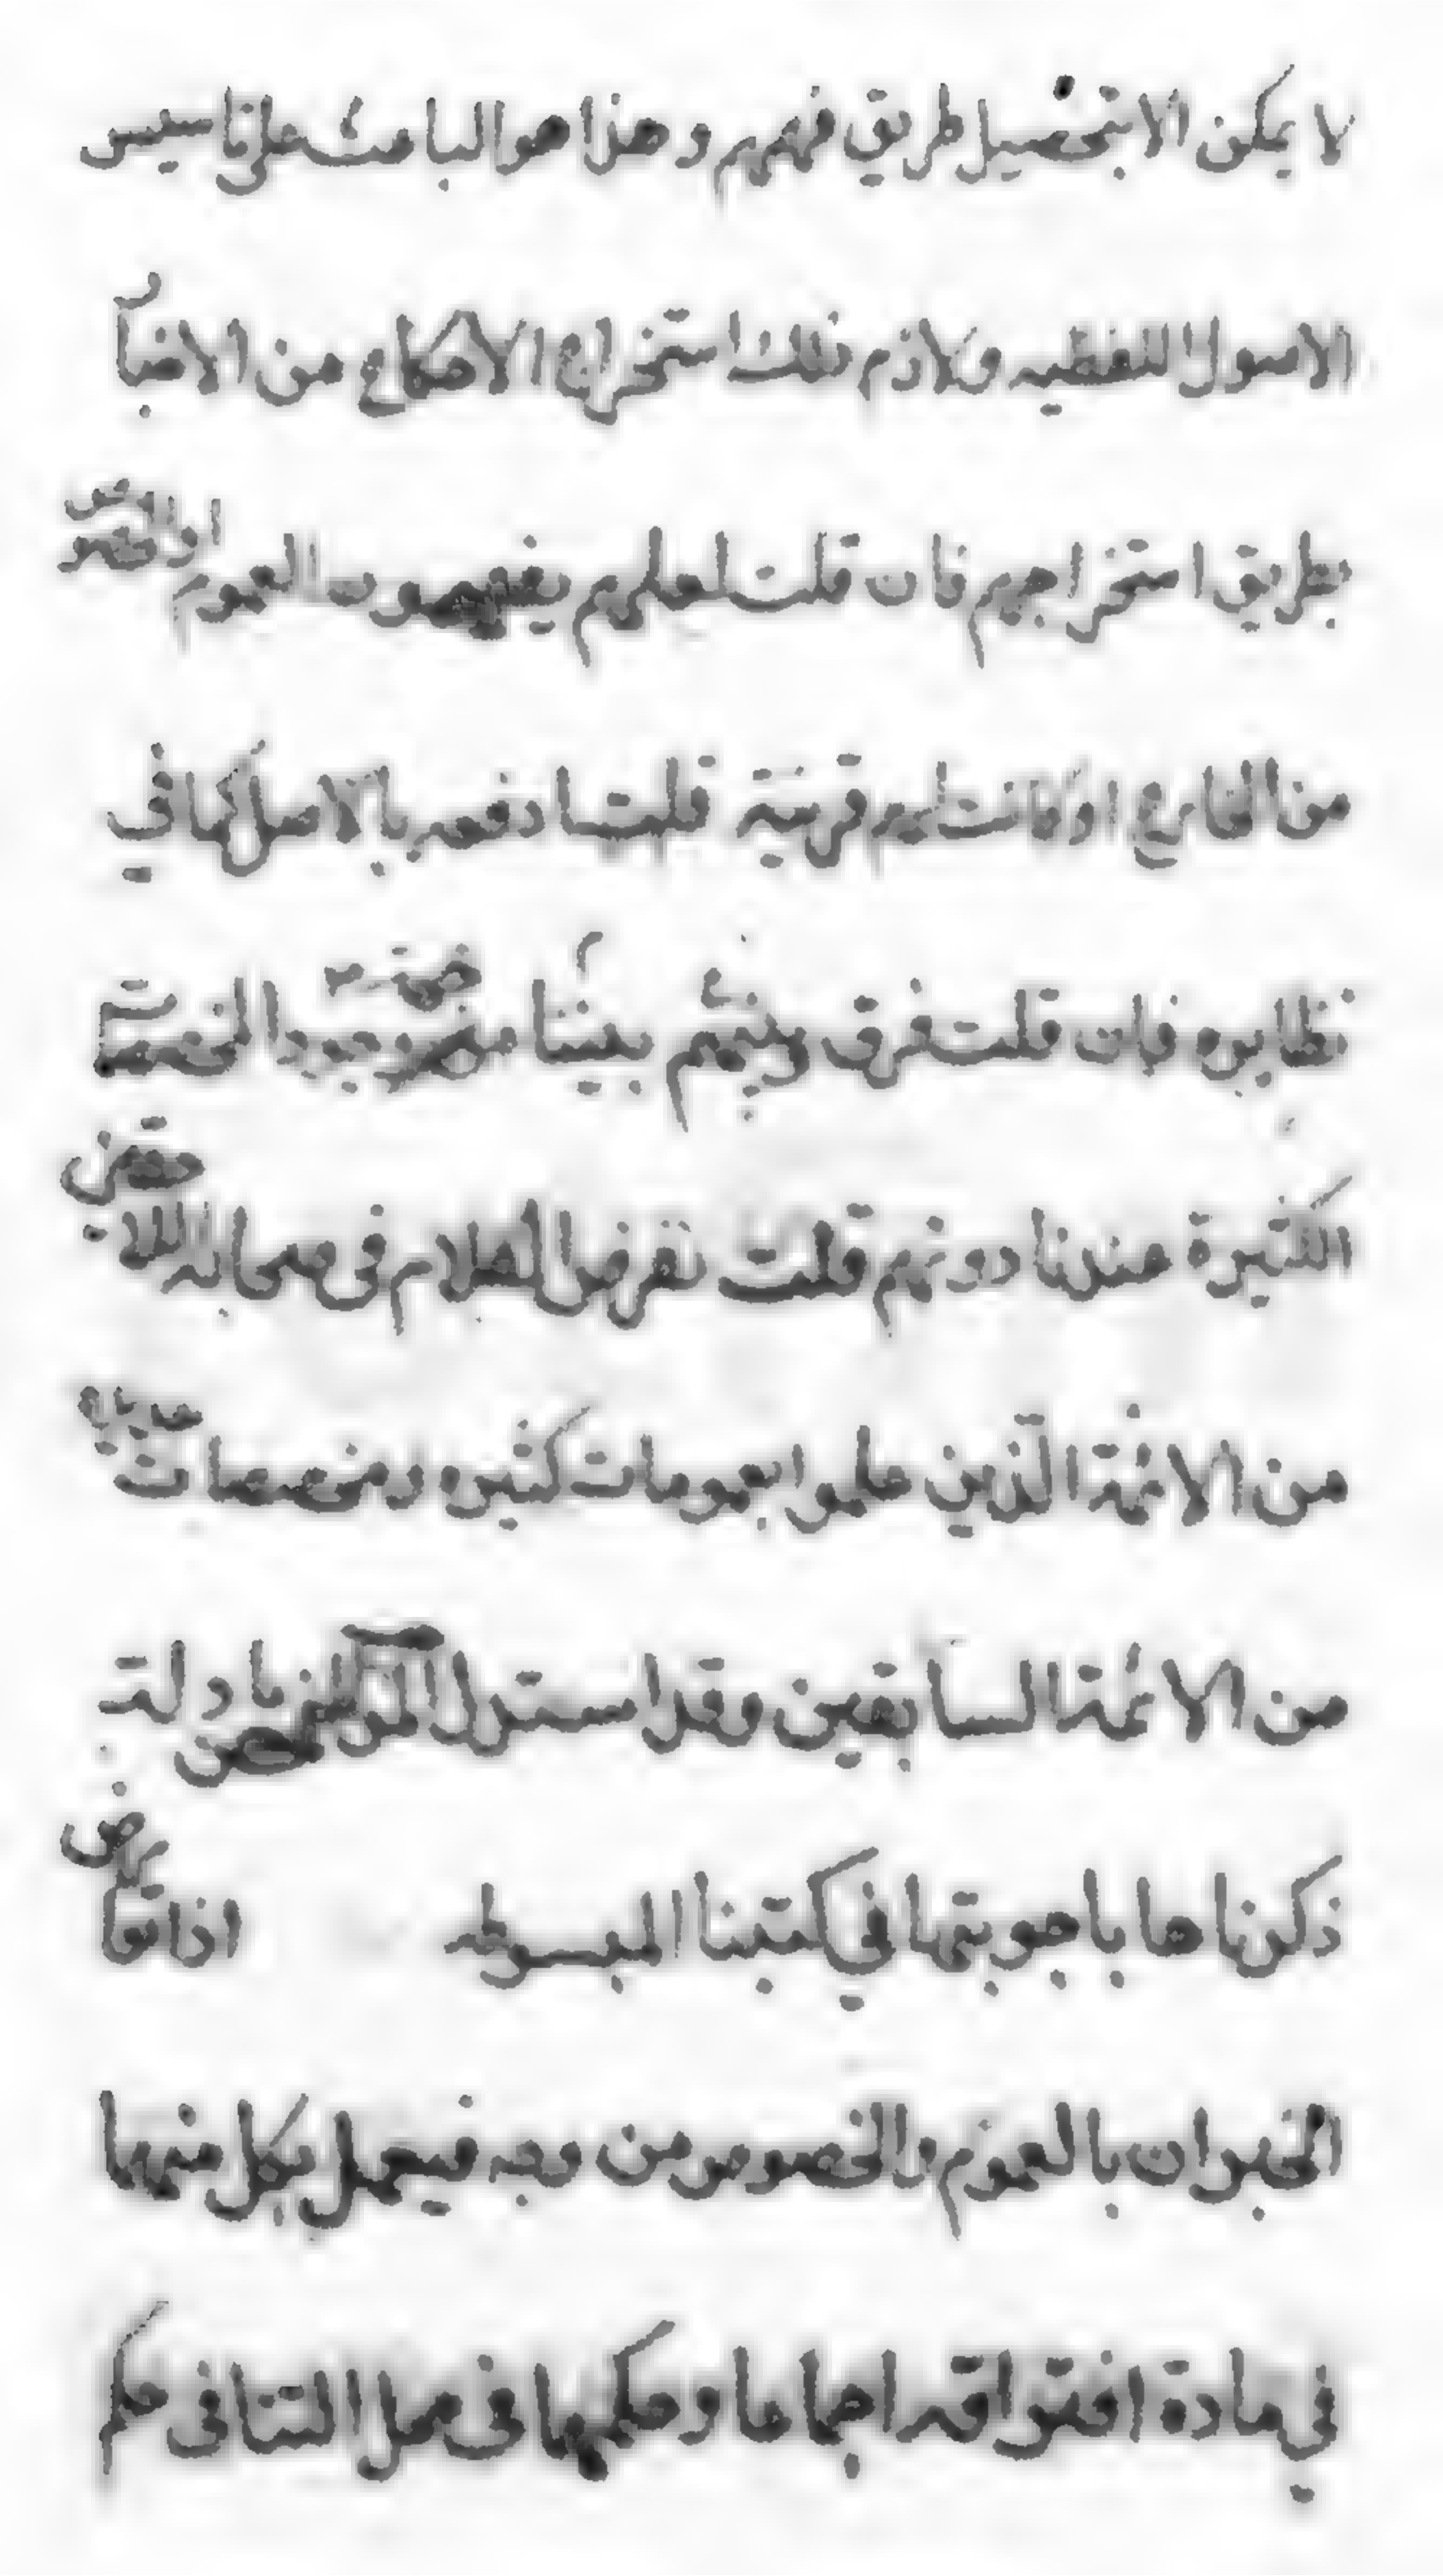 لا يمكن الا بتحصيل طريق فهمهم وهذا هو الباعث على تاسيس
الاصول اللفظيه ولازم ذلك استخراج الاحكام من الاخبا
بطريق استخراجهم فان قلت لعلهم يفهمون العموم او الخصوص
من الخارج او كانت لهم قرينة قلت ادفعه بالاصل كما في
نظايره فان قلت فرق بينهم بيننا من جهة وجود المخصصات
الكثيرة عندنا دونهم قلت نفرض الكلام في صحابه
من الائمة الذين علموا بعمومات كثيره ومخصصات
من الائمة السابقين وقد استدل بما دلت
ذكرناها باجوبتها في كتبنا المبسوطه اذا تعارض
الخبران بالعموم والخصوص من وجه فيعمل بكل منهما
في مادة افتراقه اجماعا وحكمهما في محل التنافى حكم